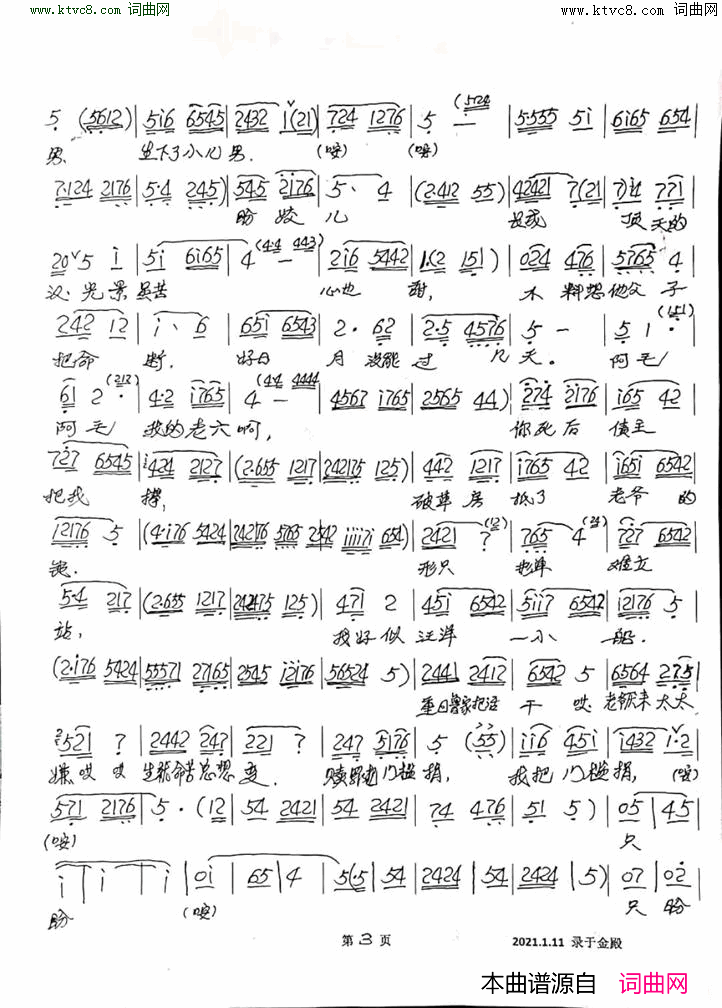 www.ktvc8.com 词曲网 www.ktvc8.com 词曲网
5 (5612) | 5i6 6545 | 2432 i(21) | 724 1276 | 5 — (5724 | 5·555 5i | 6i65 654 |
男, 生下了小儿男. (唉) (唉)
7·124 2176 | 5·4 245) | 545 2176 | 5、 4 | (2·412 55) | 42421 7(21 | 771 |
盼 姣 儿 长成 顶 天的
20 5 i | 5i 6i65 | 4 — (44 443) | 2i6 5442 | 1·(2 151) | 024 476 | 5765 4 |
汉. 光景虽苦 心也 甜, 不 料想他父 子
242 12 | i、 6 | 65i 6543 | 2· 62 | 2·5 4576 | 5 — | 5 1· (151) |
把命 断. 好日 月 没能 过 几 天。 阿毛
61 2· (212) | 4·2 i765 | 4 — (44 4444 | 4567 i765 | 2565 44) | 274 2176 | i65 42 |
阿毛 我的老六啊, 你死后 债主
727 6545 | 424 2127 | (2·655 1217 | 242175 125) | 442 1217 | i765 42 | i651 6542 |
把我 撵, 破草房 抵了 老爷 的
12176 5 | (4·i76 5424 | 242176 5765 2542 | 654) | 2421 7 (12) | 765 4 (24) | 727 6542 |
钱. 形只 影单 难立
5·4 217 | (2·655 1217 | 242475 125) | 471 2 | 45i 6542 | 5ii7 6542 | i2176 5 |
站, 我好似 汪洋 一小 船.
(2·i76 5424 | 55571 27165 | 2545 i2i76 | 56524 5) | 2441 2412 | 6542 5 | 6564 275 |
重回鲁家把活 干 哎 老爷来 太太
521 7 | 2442 247 | 221 7 | 247 5176 | 5 (55) | ii6 45i | i432 i·2 |
嫌 哎 哎 生 命苦 想 变. 赎罪 门槛捐, 我把 门槛捐, (唉)
571 2176 | 5· (12 | 54 2421 | 54 2421 | 74 476 | 51 5) | 05 | 45 |
(唉) 只
i | i | i | 0i | 65 | 4 | 5(·5 | 54 | 2424 | 54 | 2424 | 5) | 07 | 02 |
盼 (唉) 只 盼
第 3 页 2021.1.11 录于金殿
本曲谱源自 词曲网